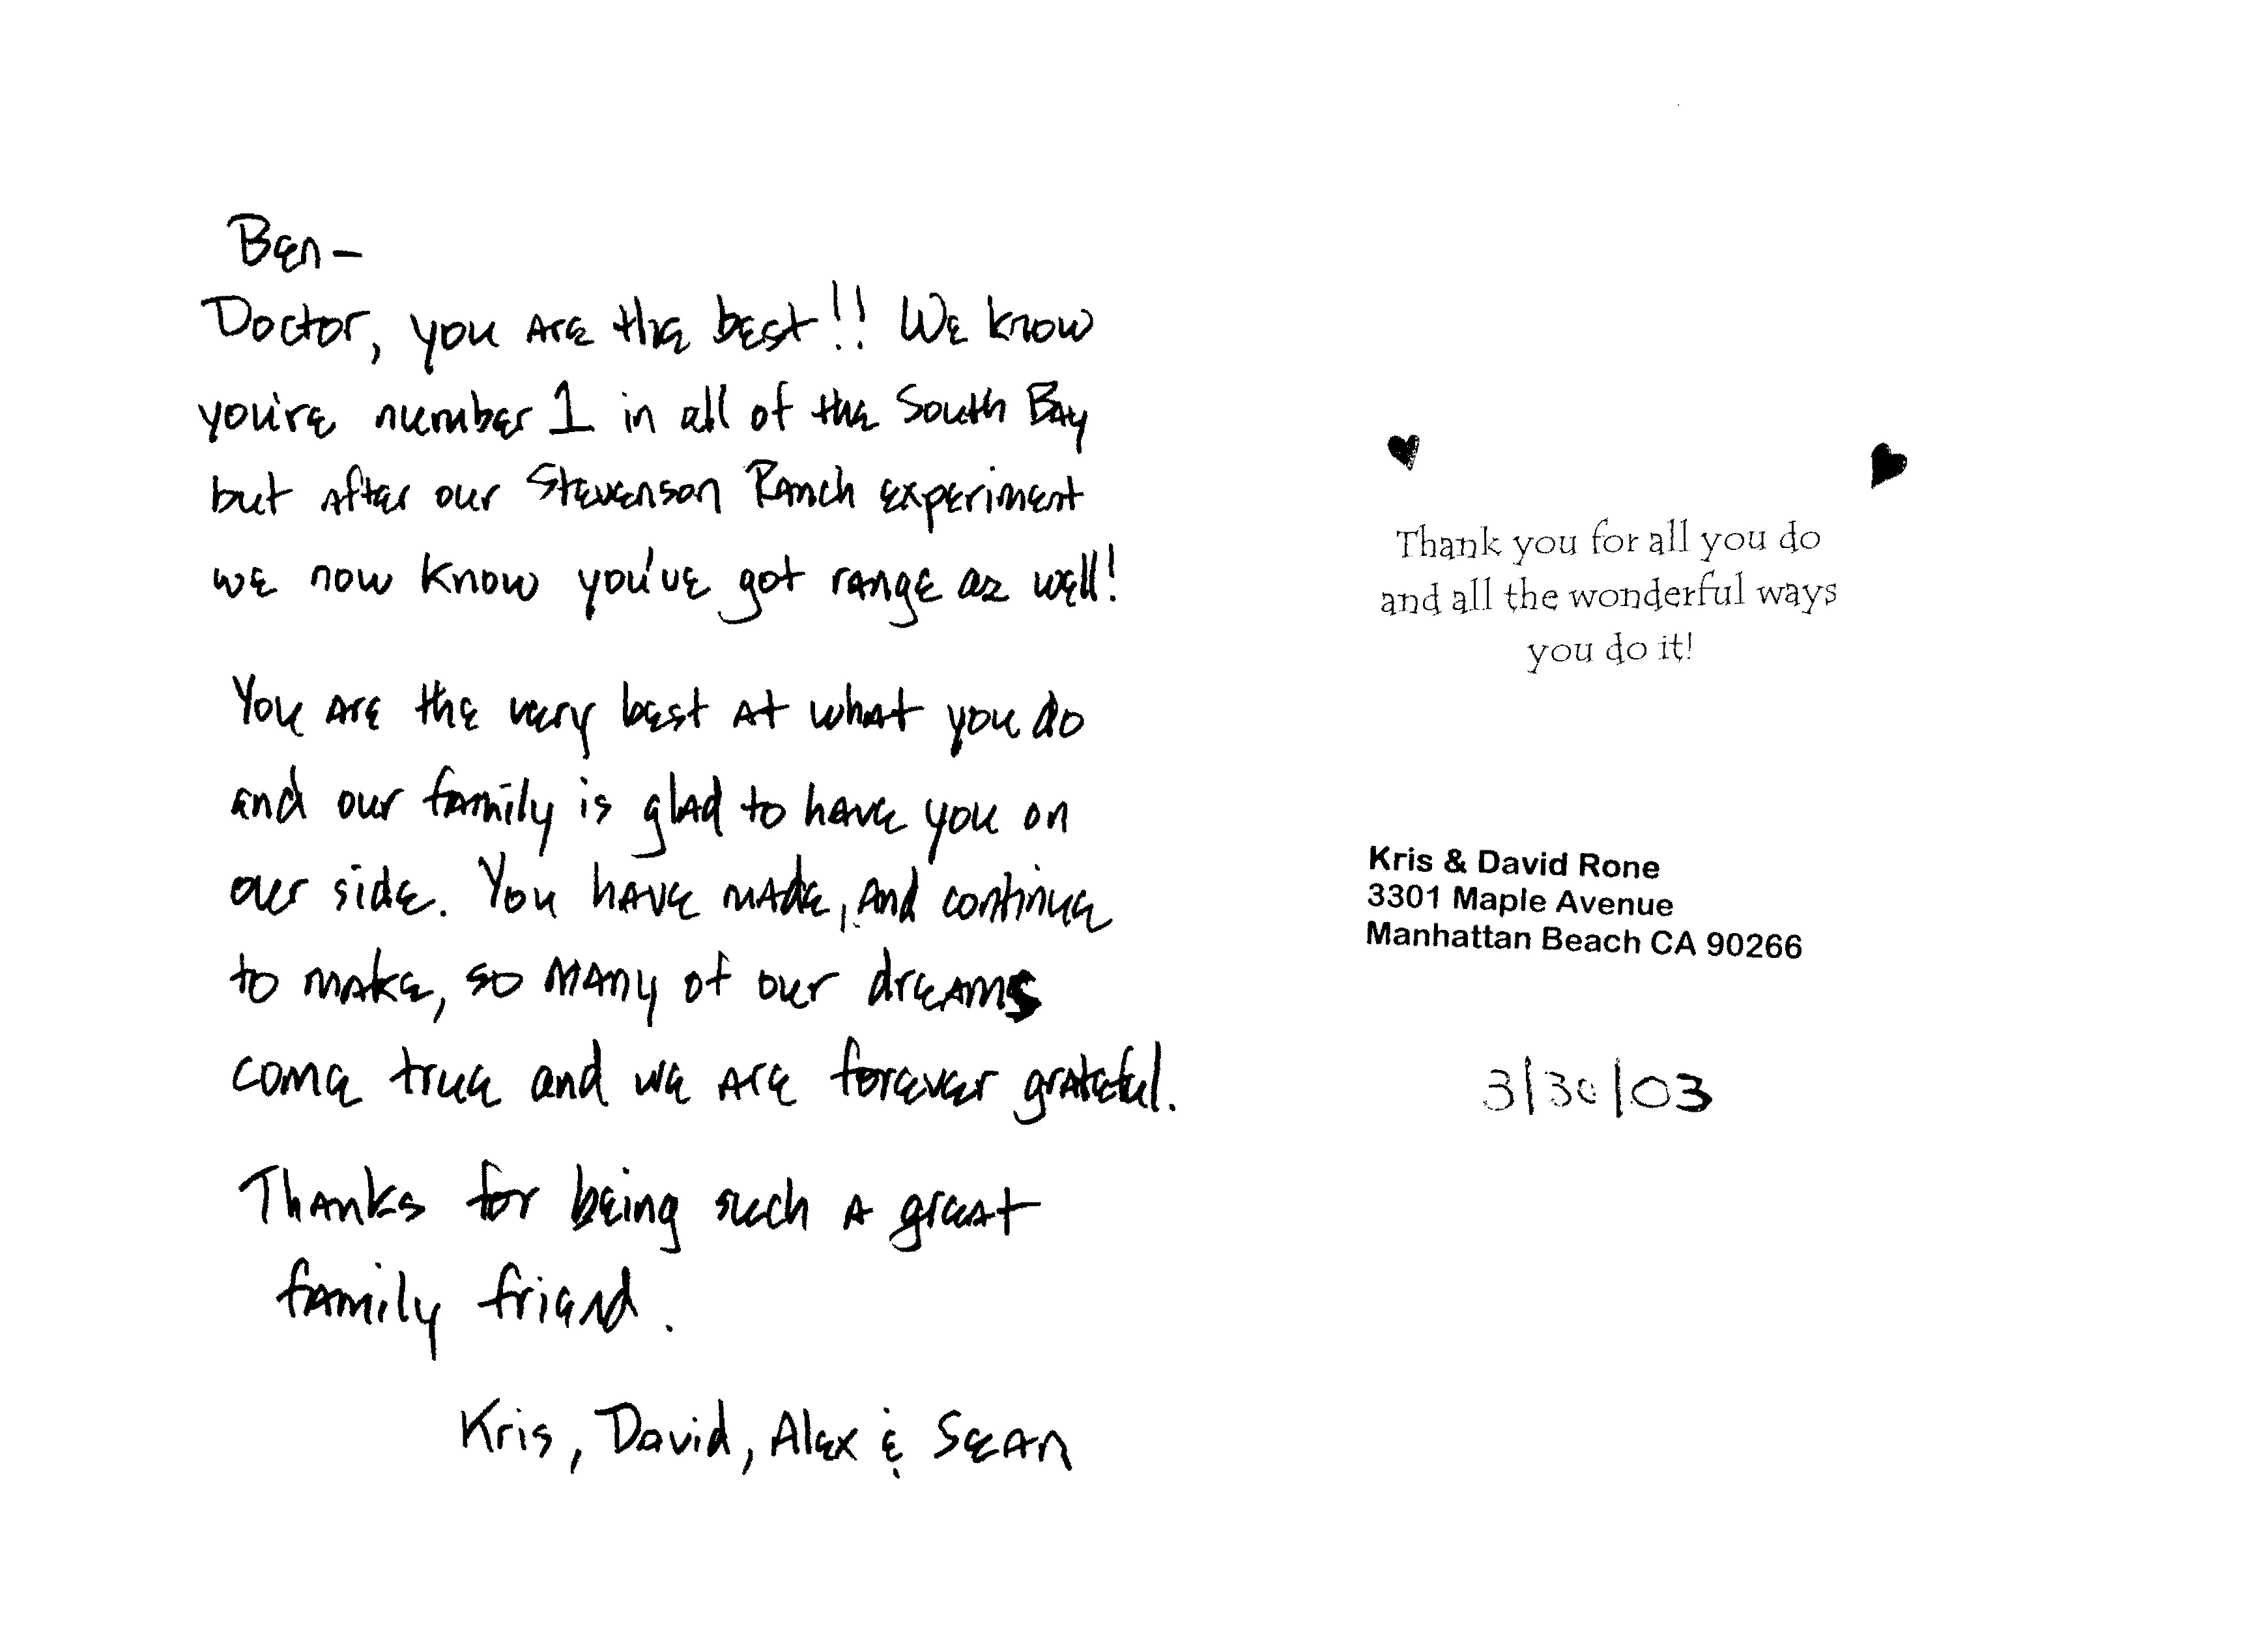 Ben-
Doctor, you are the best!! We know
you're number 1 in all of the South Bay
but after our Stevenson Ranch experiment
we now know you've got range as well!
You are the very best at what you do
and our family is glad to have you on
our side. You have made, and continue
to make, so many of our dreams
come true and we are forever grateful.
Thanks for being such a great
family friend.
Kris, David, Alex & Sean
Thank you for all you do
and all the wonderful ways
you do it!
Kris & David Rone
3301 Maple Avenue
Manhattan Beach CA 90266
3/30/03